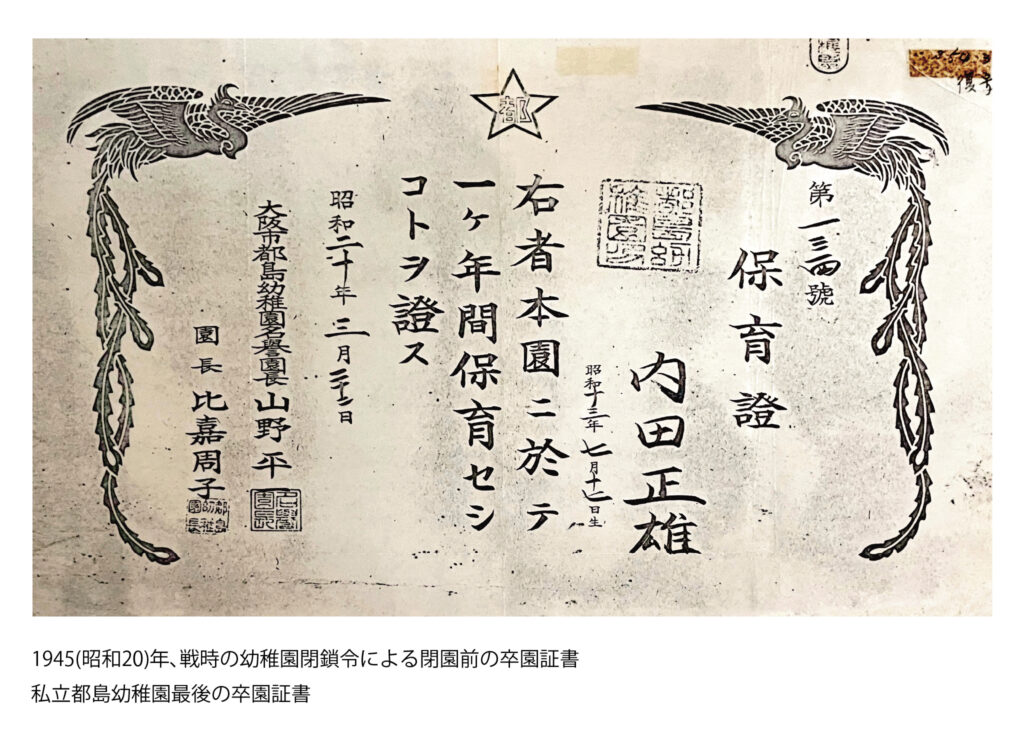 都
第一三四號
保育證
内田正雄
昭和十三年七月
日生
右者本園ニ於テ
一ケ年間保育セシ
コトヲ證ス
昭和二十年三月
日
大阪市都島幼稚園名誉園長山野平
園長比嘉周子
1945(昭和20)年、戦時の幼稚園閉鎖令による閉園前の卒園証書
私立都島幼稚園最後の卒園証書